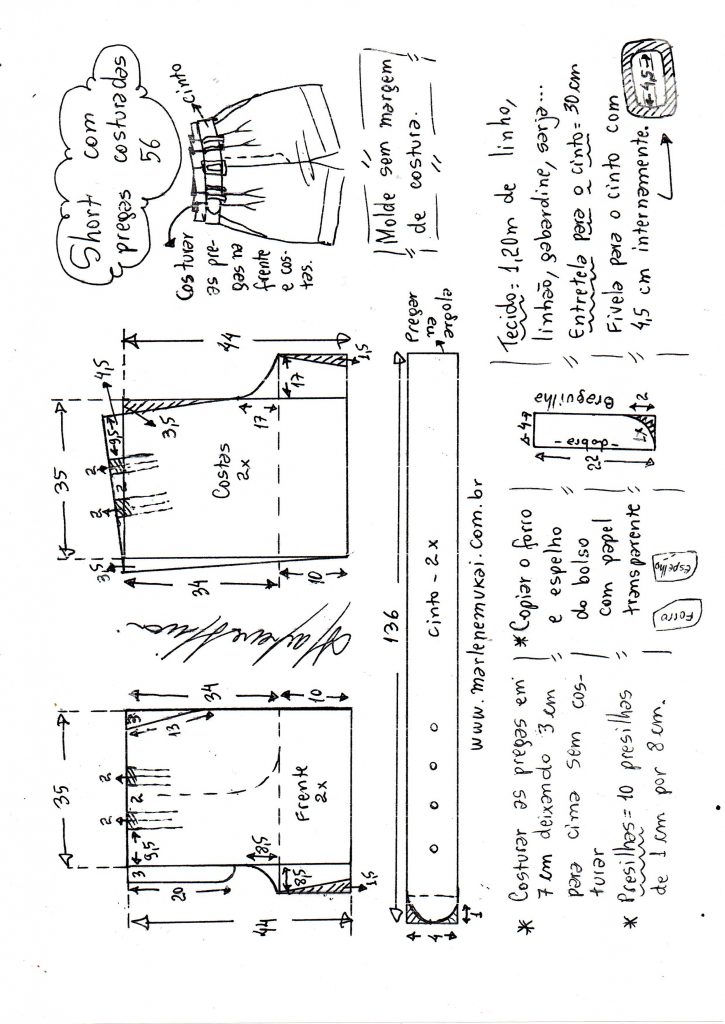 Short com
pregas costuradas
56
cinto
Costurar
as pre-
gas na
frente
e cos-
tas.
Molde sem margem
de costura.
35
44
4,5
3,5
9,5
2
2
2
3,5
17
17
1,5
34
10
Costas
2x
35
34
10
3
13
2
2
2
9,5
3
20
8,5
8,5
1,5
44
Frente
2x
136
cinto - 2x
Pregar
na
argola
4
4
1
www.marlenemukai.com.br
* Costurar as pregas em
7 cm deixando 3 cm
para cima sem cos-
turar
* Presilhas = 10 presilhas
de 1 cm por 8 cm.
* Copiar o forro
e espelho
do bolso
com papel
transparente
Forro
Espelho
4
22
-dobra-
1x
Braguilha
2
Tecido: 1,20m de linho,
linhão, gabardine, sarja...
Entretela para o cinto = 30 cm
Fivela para o cinto com
4,5 cm internamente.
4,5